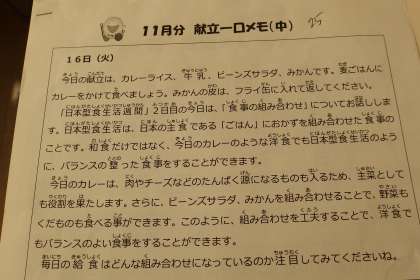 11月分 献立一口メモ(中)
16日(火)
今日の献立は、カレーライス、牛乳、ビーンズサラダ、みかんです。麦ごはんに
カレーをかけて食べましょう。みかんの皮は、フライ缶に入れて返してください。
「日本型食生活週間」2日目の今日は、「食事の組み合わせ」についてお話しま
す。日本型食生活は、日本の主食である「ごはん」におかずを組み合わせた食事の
ことです。和食だけではなく、今日のカレーのような洋食でも日本型食生活のよう
に、バランスの整った食事をすることができます。
今日のカレーは、肉やチーズなどのたんぱく源になるものも入るため、主菜として
も役割を果たします。さらに、ビーンズサラダ、みかんを組み合わせることで、野菜も
くだものも食べる事ができます。このように、組み合わせを工夫することで、洋食で
もバランスのよい食事をすることができます。
毎日の給食はどんな組み合わせになっているのか注目してみてくださいね。